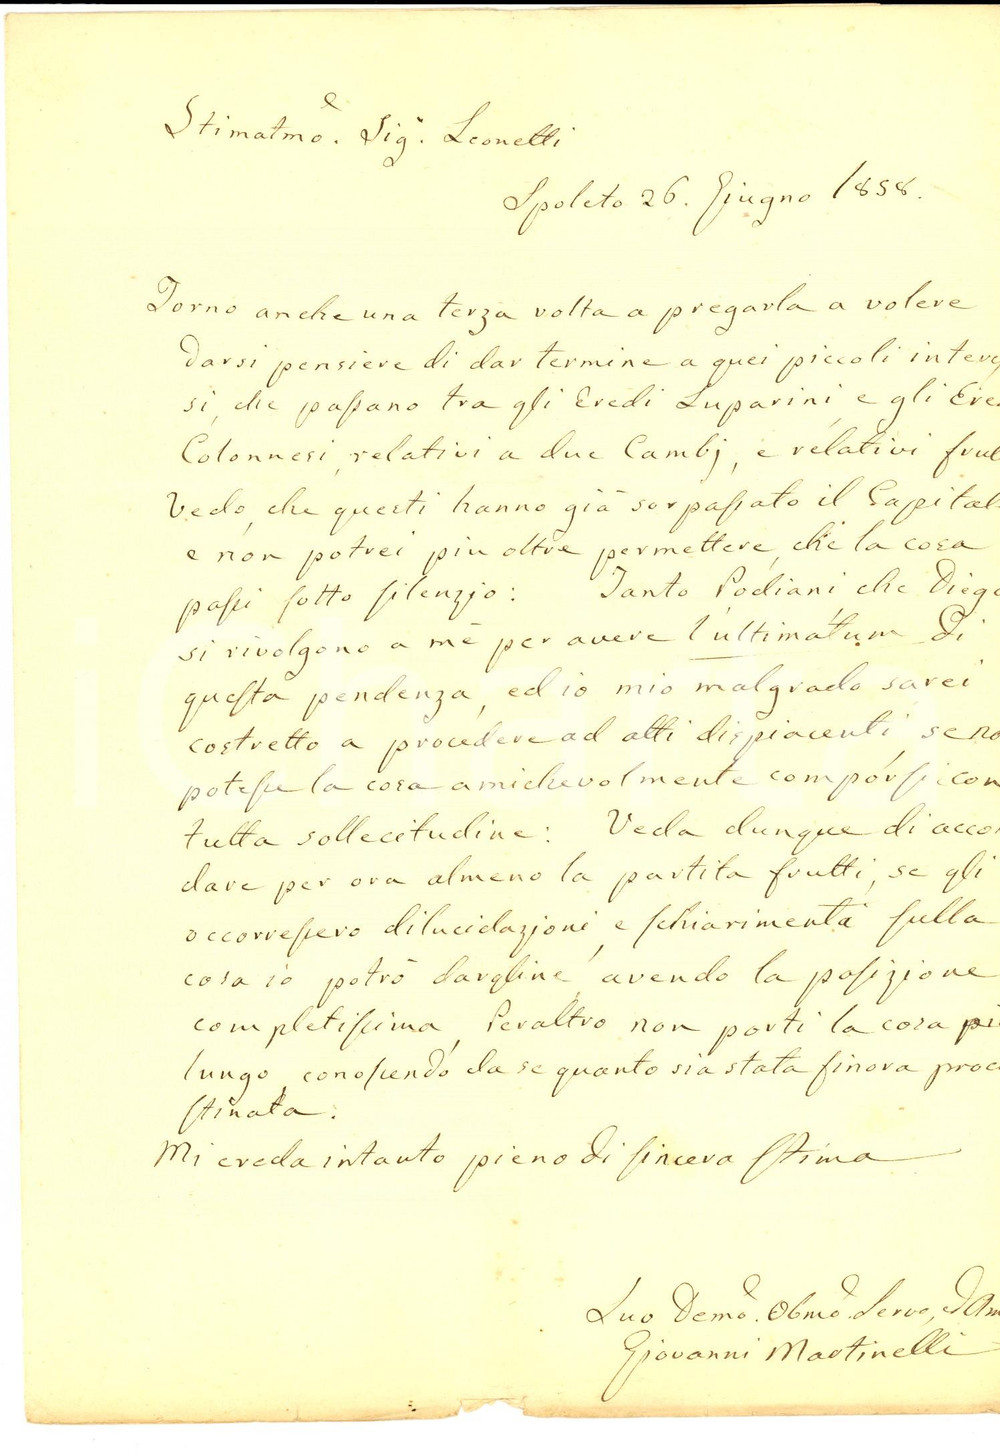 Stimatmo. Sigr. Leonelli
Spoleto 26. Giugno 1858.
Torno anche una terza volta a pregarla a volere
darsi pensiere di dar termine a quei piccoli interes
si, che passano tra gli Eredi Luparini, e gli Ere
Colonnesi, relativi a due Cambj, e relativi frut
Vedo, che questi hanno già sorpassato il Capital
e non potrei piu oltre permettere, che la cosa
passi sotto silenzio: Tanto Podiani che Diego
si rivolgono a me per avere l'ultimatum di
questa pendenza, ed io mio malgrado sarei
costretto a procedere ad atti dispiacenti, se no
potesse la cosa amichevolmente compórsi con
tutta sollecitudine: Veda dunque di accor
dare per ora almeno la partita frutti, se gli
occorressero dilucidazioni, e schiarimenti sulla
cosa io potrò dargline, avendo la posizione
completissima, Peraltro non porti la cosa più
lungo, conoscendo da se quanto sia stata finora procra
stinata.
Mi creda intanto pieno di sincera stima
Suo Demo. Obmo Servo, ed Am
Giovanni Martinelli